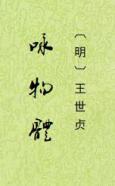 〔明〕王世贞
咏物體